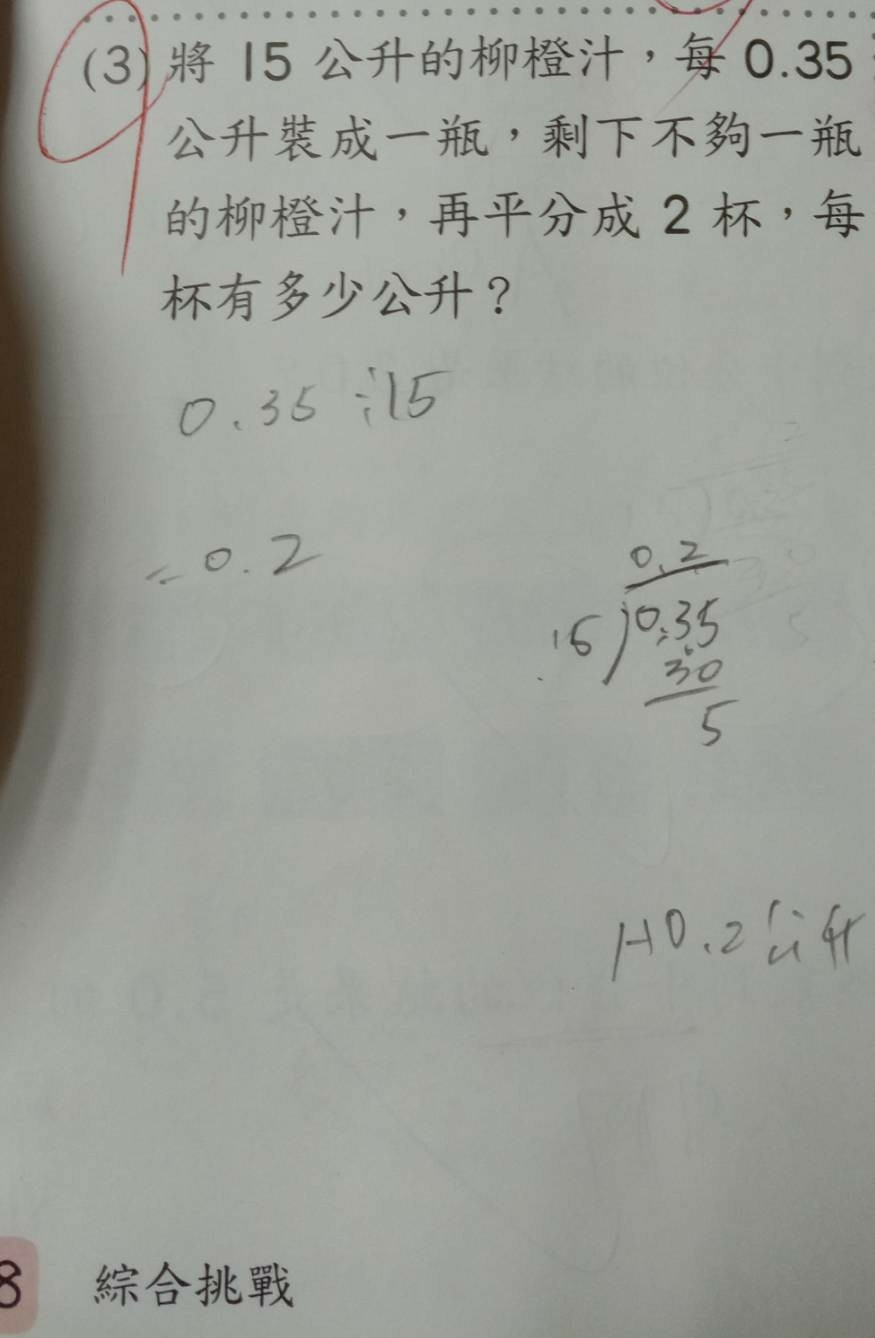 (3) 將 15 公升的柳橙汁，每 0.35
公升裝成一瓶，剩下不夠一瓶
的柳橙汁，再平分成 2 杯，每
杯有多少公升？
0.35÷15
=0.2
0.2
15)0.35
30
5
A:0.2公升
8 綜合挑戰